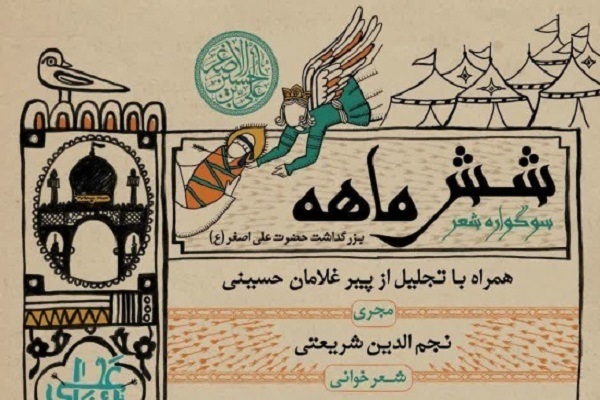 شش ماهه
سوگواره شعر
بزرگداشت حضرت علی اصغر (ع)
همراه با تجلیل از پیر غلامان حسینی
مجری
نجم الدین شریعتی
شعر خوانی